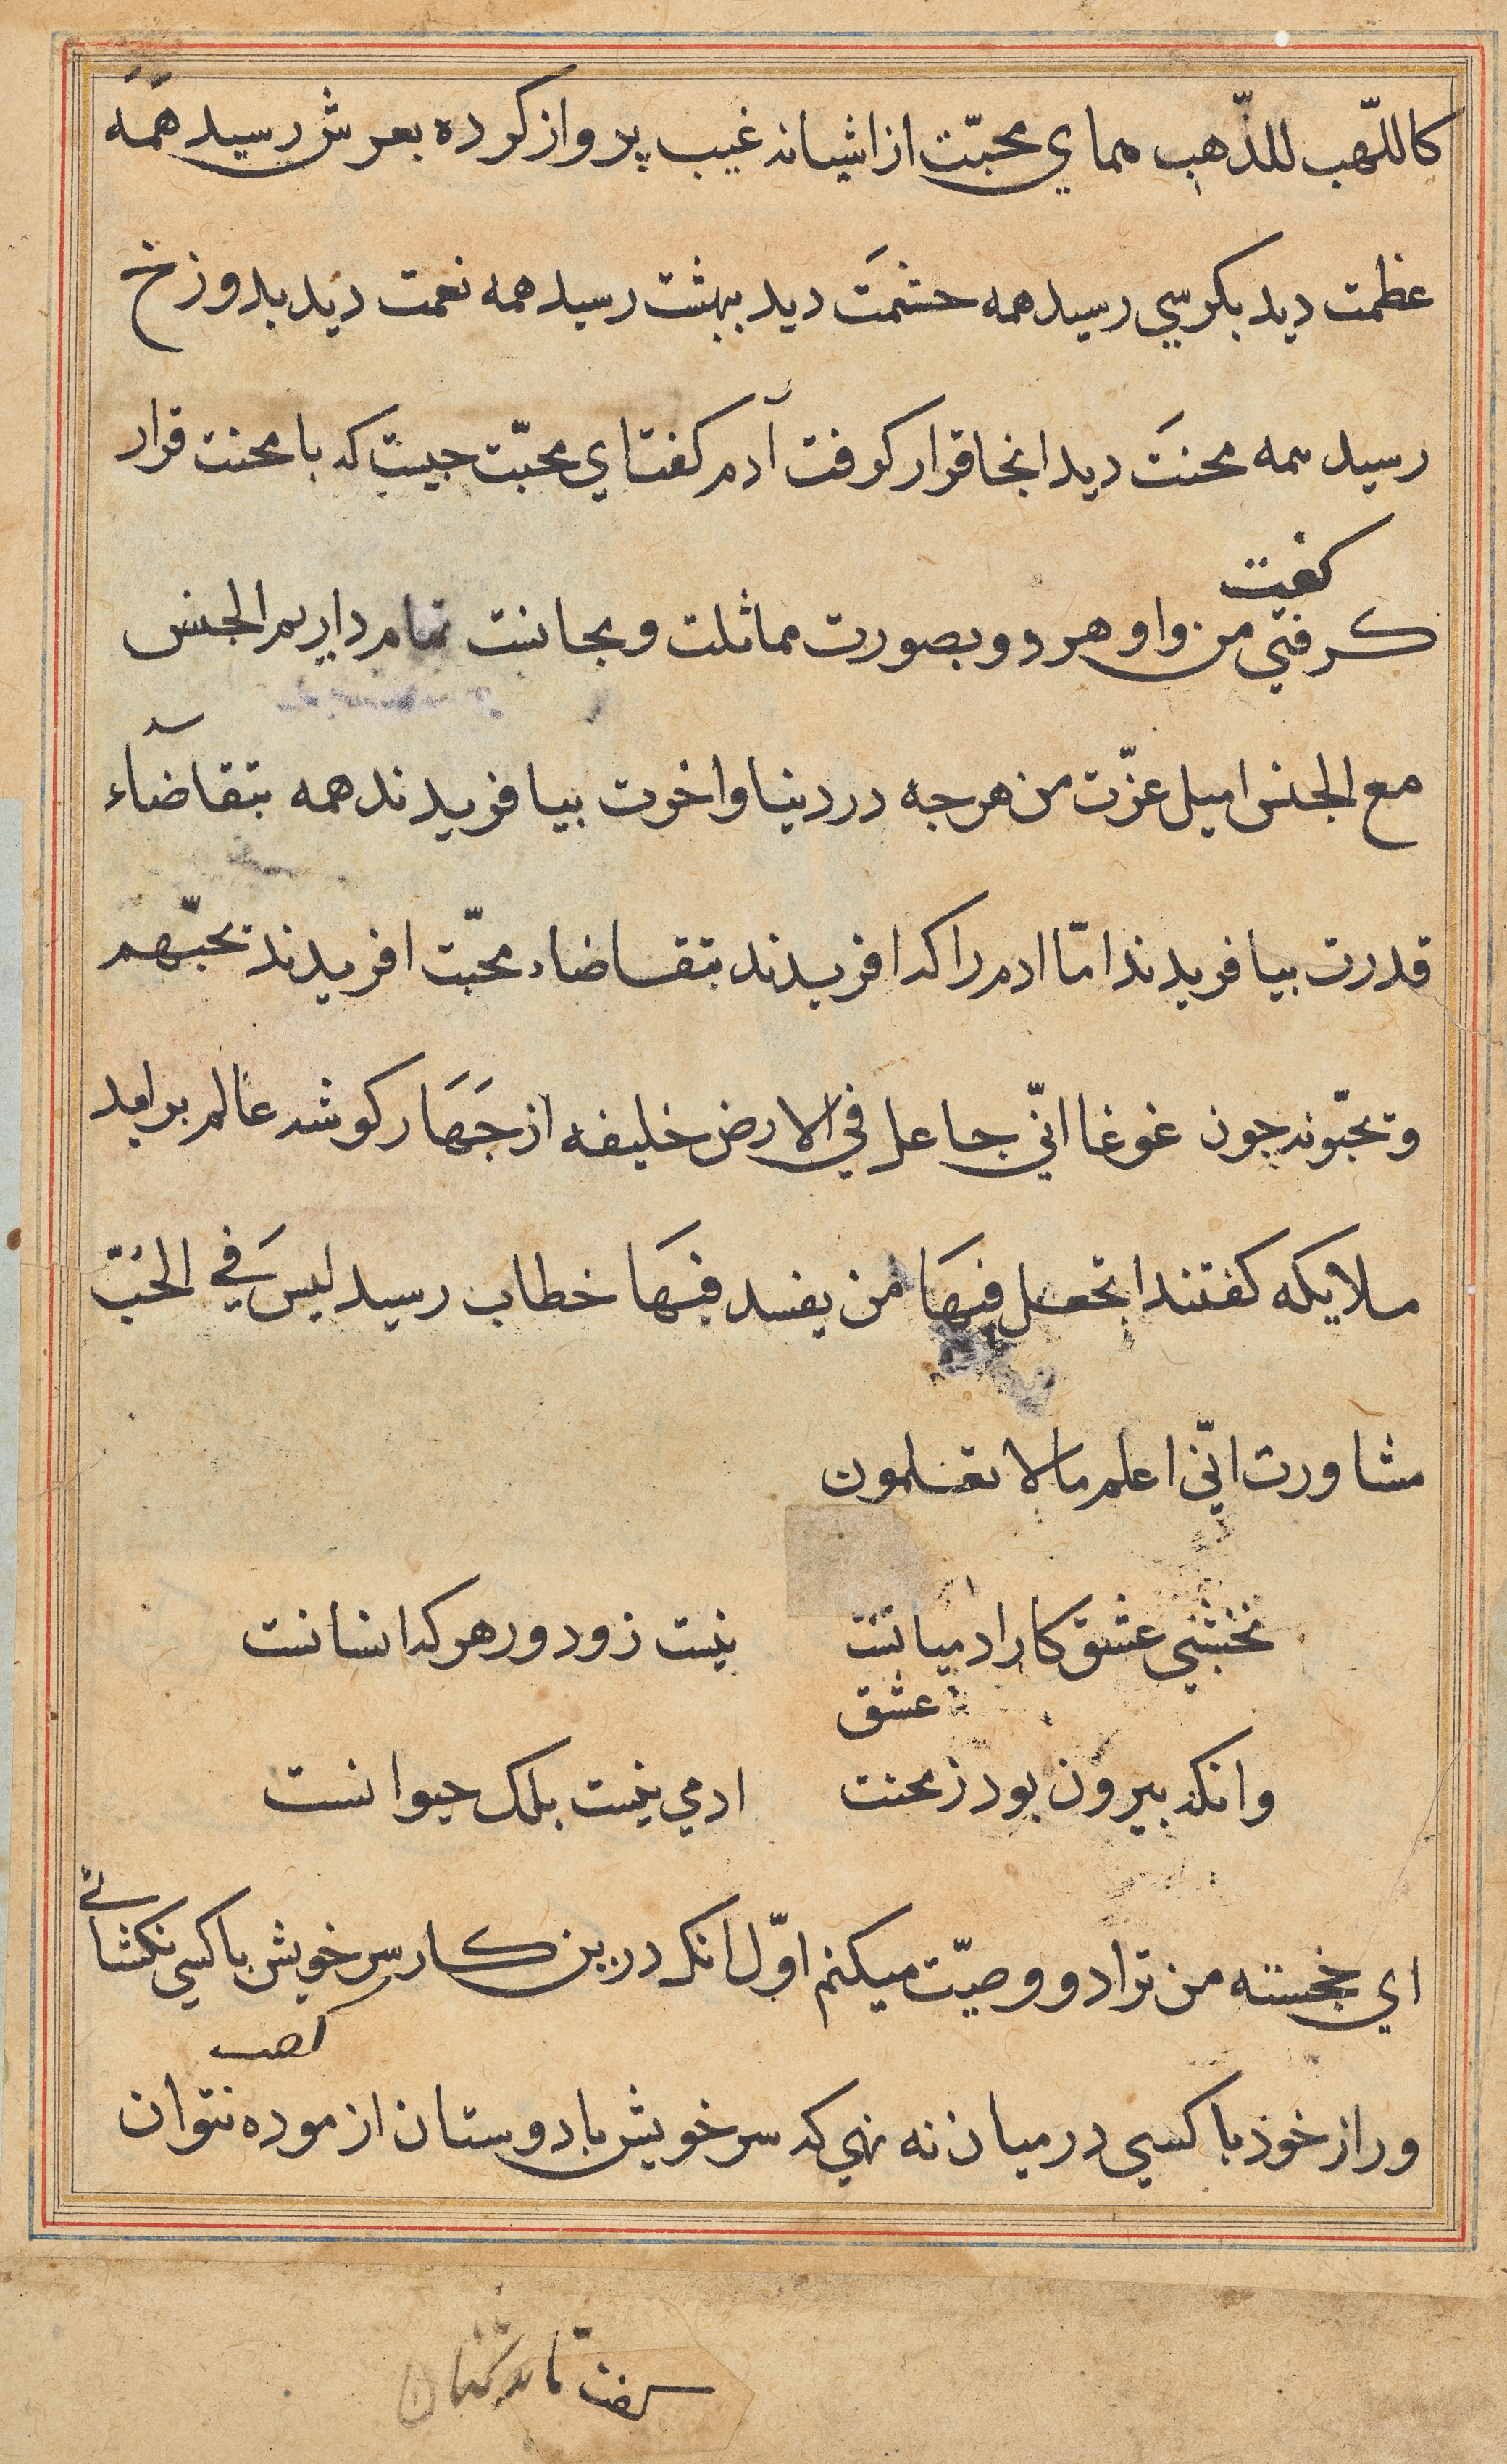 كاللّهب للذّهب هماي محبّت از اشيانه غيب پرواز كرده بعرش رسيد همه
عظمت ديد بكرسي رسيد همه حشمت ديد ببهشت رسيد همه نعمت ديد بدوزخ
رسيد همه محنت ديد انجا قرار كرفت آدم كفت اي محبّت جيست كه با محنت قرار
كفت
كرفتي من و او هر دو بصورت مماثلت و مجانست تمام داريم الجنس
مع الجنس اميل عزّت من هرجه در دنيا و اخرت بيافريدند همه بتقاضاء
قدرت بيافريدند امّا ادم را كه افريدند بتقاضاء محبّت افريدند يحبّهم
و يحبّونه جون غوغا انّي جاعل في الارض خليفه از جهار كوشه عالم برامد
ملايكه كفتند اتجعل فيها من يفسد فيها خطاب رسيد ليس في الحبّ
مشاورت انّي اعلم ما لا تعلمون
نخشبي عشق كار ادميانست نيست زو دور هر كه انسانست
عشق
وانكه بيرون بود ز محنت ادمي نيست بلك حيوانست
اي خجسته من ترا دو وصيّت ميكنم اوّل انكه درين كار سر خويش با كسي نكشائي
كفت
و راز خوذ با كسي در ميان نه نهي كه سر خويش با دوستان ازموده نتوان